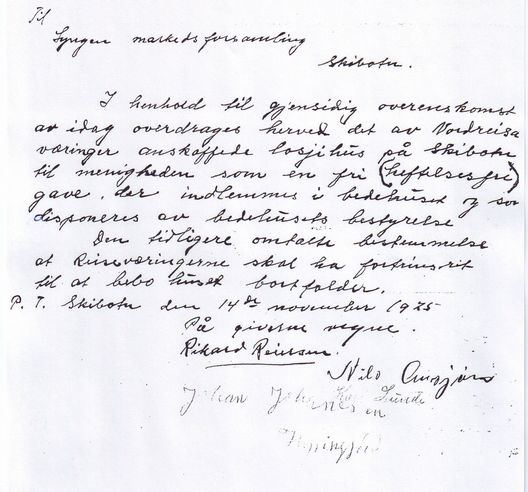 Til
Lyngen markedsforsamling
Skibotn.
I henhold til gjensidig overenskomst
av idag overdrages herved det av Nordreisa
væringer anskaffede losjihus på Skibotn
til menigheden som en fri (heftelsesfri)
gave, der indlemmes i bedehuset og som
disponeres av bedehusets bestyrelse
Den tidligere omtalte bestemmelse
at Reisaværingerne skal ha fortrinsrit
til at bebo huset bortfalder.
P. T. Skibotn den 14de november 1925
På givernes vegne.
Rikard Reiersen.
Nils
Johan Johannesen
Lunde